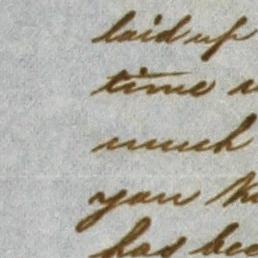 laid up
time
much
you
has